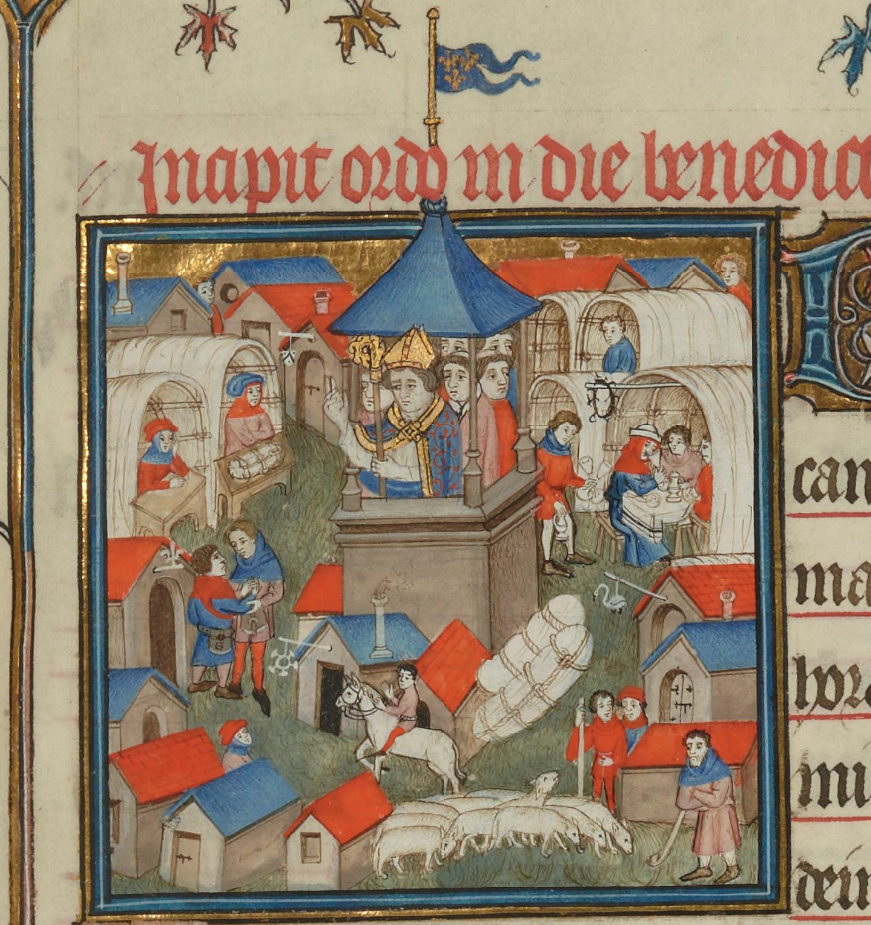 Incipit ordo in die benedict
can
ma
hora
mi
dein